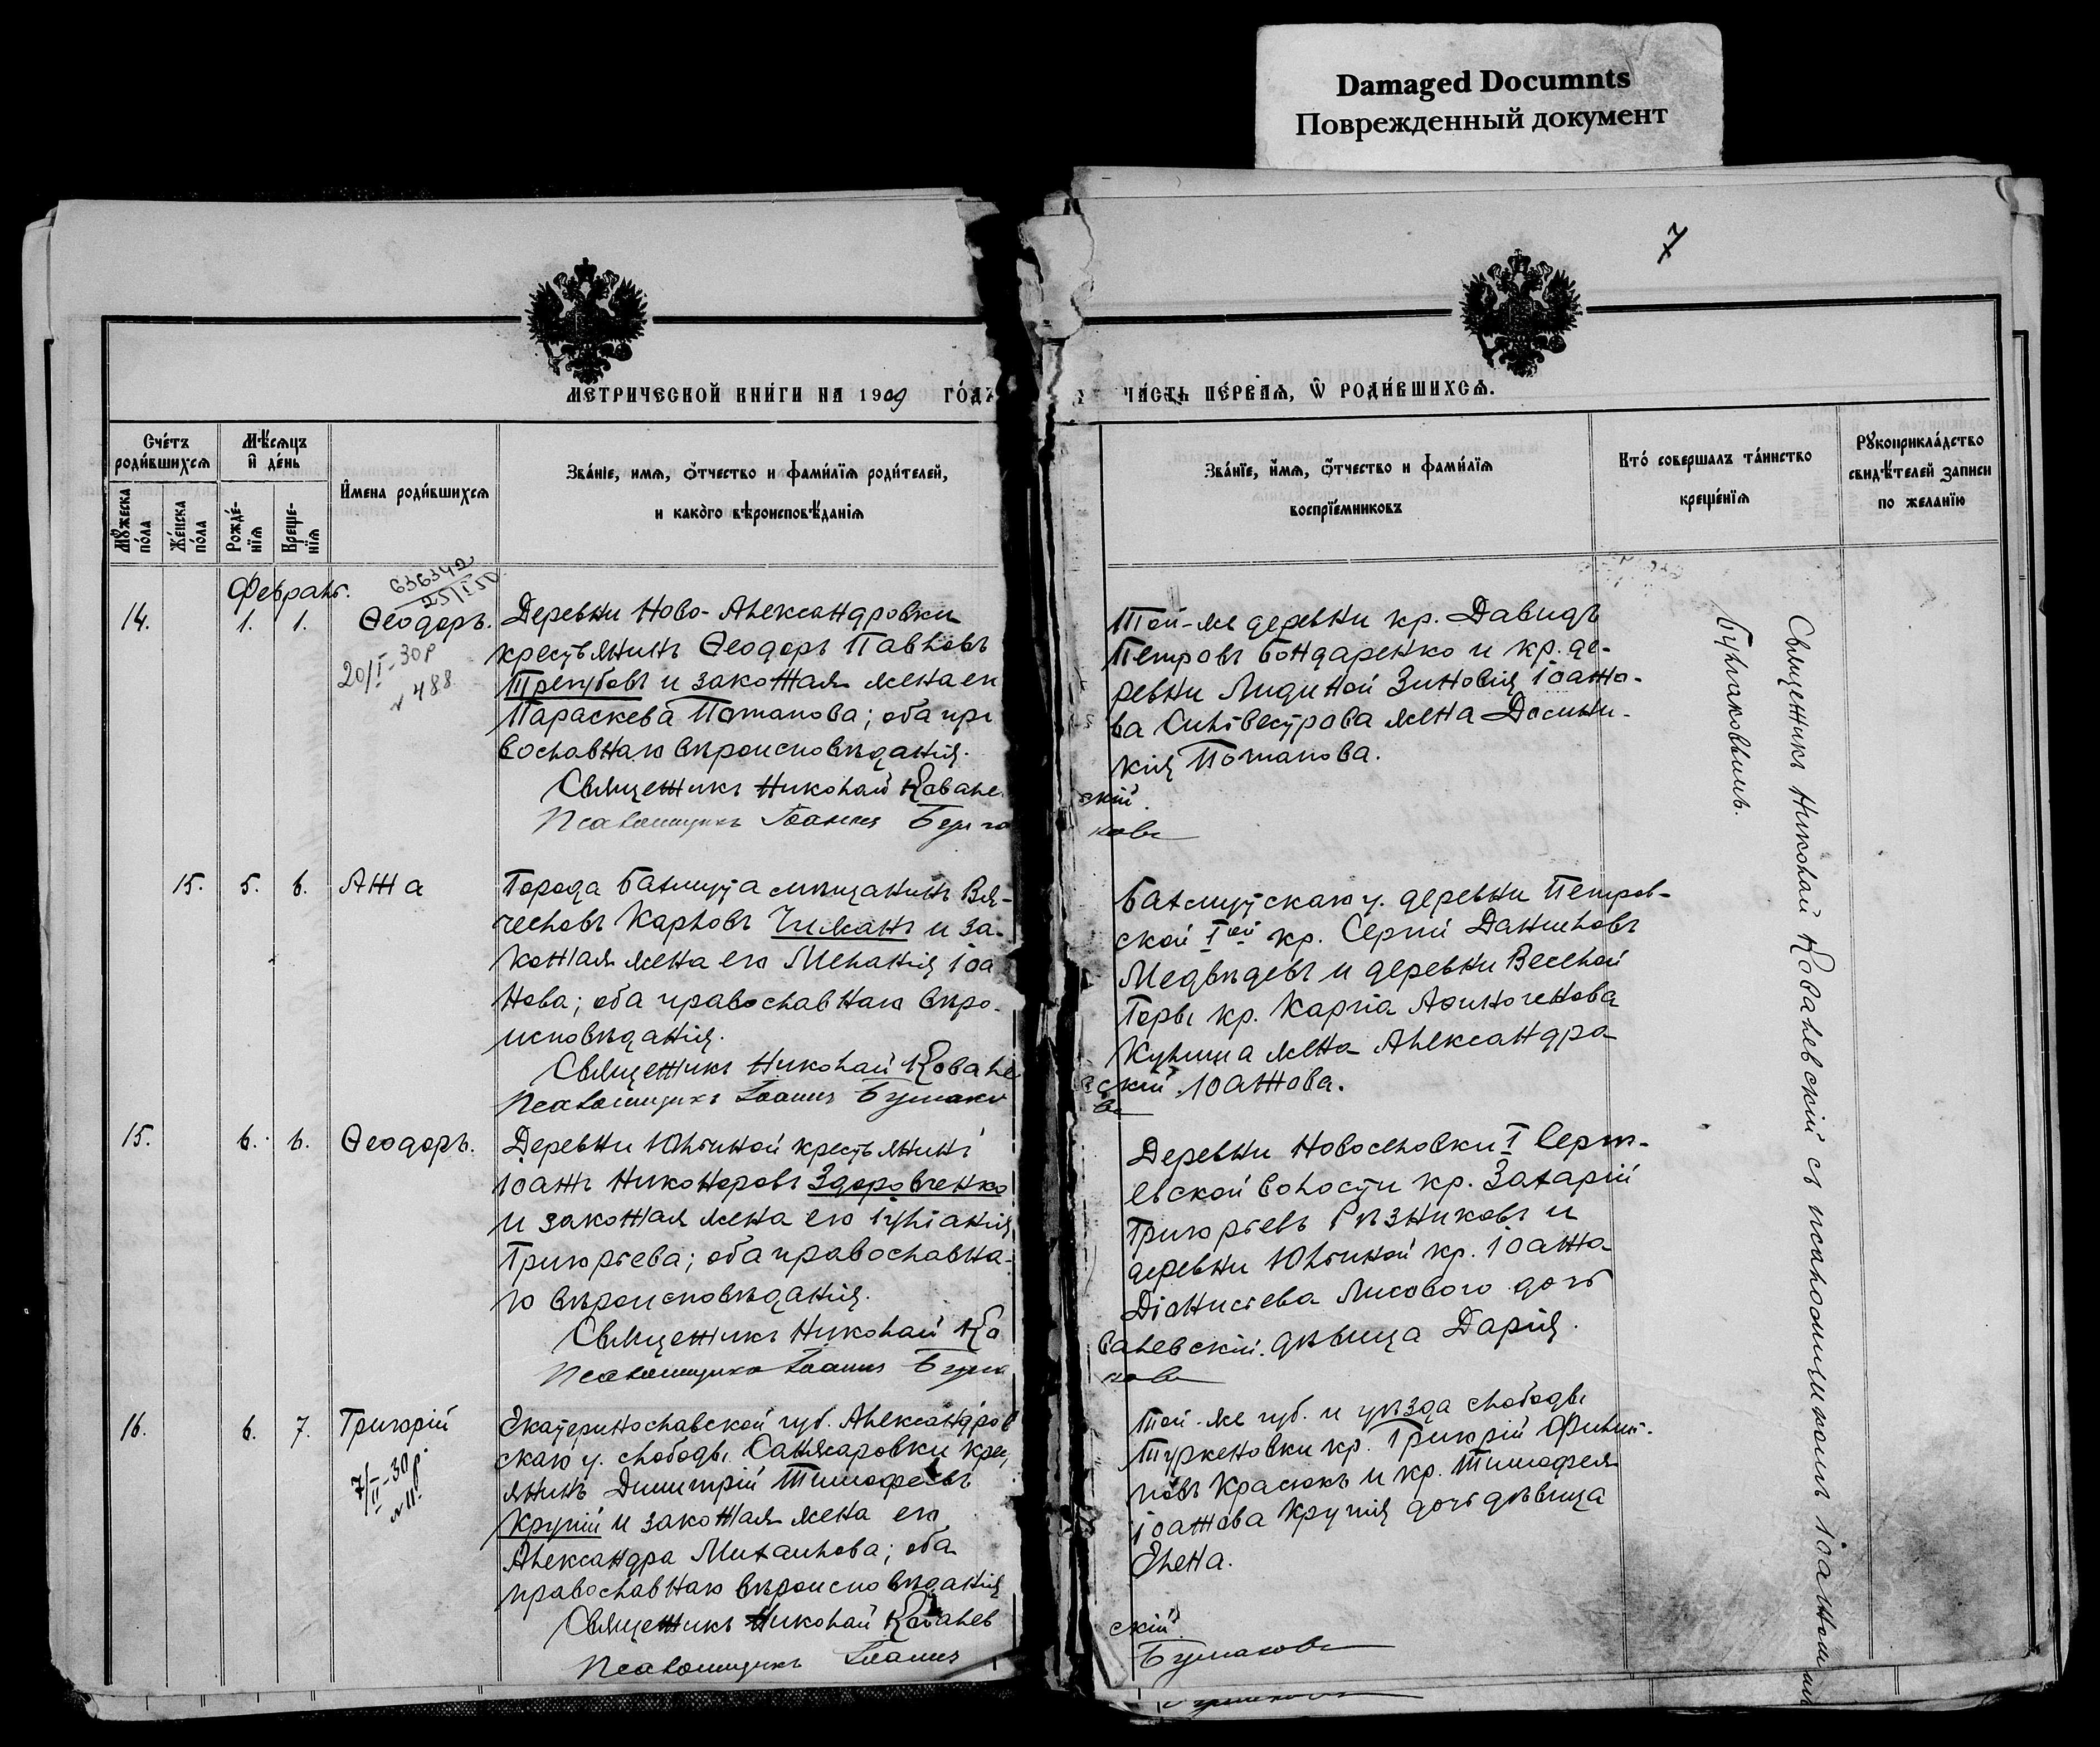 Damaged Documnts
Поврежденный документ
7
МЕТРИЧЕСКОЙ КНИГИ НА 1909 ГОДЪ
ЧАСТЬ ПЕРВАЯ, Ѡ РОДИВШИХСЯ.
Счетъ родившихся
Мужеска пола
Женска пола
Мѣсяцъ и день
Рождѐ-нїя
Креще-нїя
Имена родившихся
Званіе, имя, отчество и фамилїя родителей,
и какого вѣроисповѣданія
Званїе, имя, отчество и фамилїя
воспрїемниковъ
Кто совершалъ таинство
крещенїя
Рукоприкладство
свидѣтелей записи
по желанїю
Февраль.
636342
25/I 50
14. 1. 1. Ѳеодоръ.
20/I-30 р
№ 488
Деревни Ново-Александровки
крестьянинъ Ѳеодоръ Павловъ
Трегубовъ и законная жена его
Параскева Потапова; оба пра
вославнаго вѣроисповѣданія.
Священникъ Николай Ковале
Псаломщикъ Іоаннъ
Той-же деревни кр. Давидъ
Петровъ Бондаренко и кр. де-
ревни Лидиной Зиновія Іоанно-
ва Сильвестрова жена Домни-
кія Потапова.
скій.
ковъ
15. 5. 6. Анна
Города Бахмута мѣщанинъ Вя-
чеславъ Карповъ Чижанъ и за-
конная жена его Меланія Іоа
нова; оба православнаго вѣро-
исповѣданія.
Священникъ Николай Ковале
Псаломщикъ Іоаннъ
Бахмутскаго у. деревни Петров-
ской I ой кр. Сергій Даниловъ
Медвѣдевъ и деревни Веселой
Горы кр. Карпа Афиногенова
Купина жена Александра
скій Іоаннова.
въ
15. 6. 6. Ѳеодоръ.
Деревни Юльиной крестьянинъ
Іоаннъ Никоноровъ Здоровченко
и законная жена его Іуліанія
Григорьева; оба православна-
го вѣроисповѣданія.
Священникъ Николай Ко
Псаломщикъ Іоаннъ
Деревни Новоселовки I Серг-
евской волости кр. Захарій
Григорьевъ Рѣзниковъ и
деревни Юльиной кр. Іоанна
Діонисьева Лисового дочь
валевскій. дѣвица Дарія.
ковъ
16. 6. 7. Григорій
7/II-30 р.
№ 11
Екатеринославской губ. Александров
скаго у. слободы Санжаровки крес
янинъ Димитрій Тимофеевъ
Крупій и законная жена его
Александра Михаилова; оба
православнаго вѣроисповѣданія
Священникъ Николай Ковалев
Псаломщикъ Іоаннъ
Той-же губ. и уѣзда слободы
Туркеновки кр. Григорій Филип-
повъ Красюкъ и кр. Тимофея
Іоаннова Крупія дочь дѣвица
Елена.
скій.
Священникъ Николай Ковалевскій съ псаломщикомъ Іоанномъ